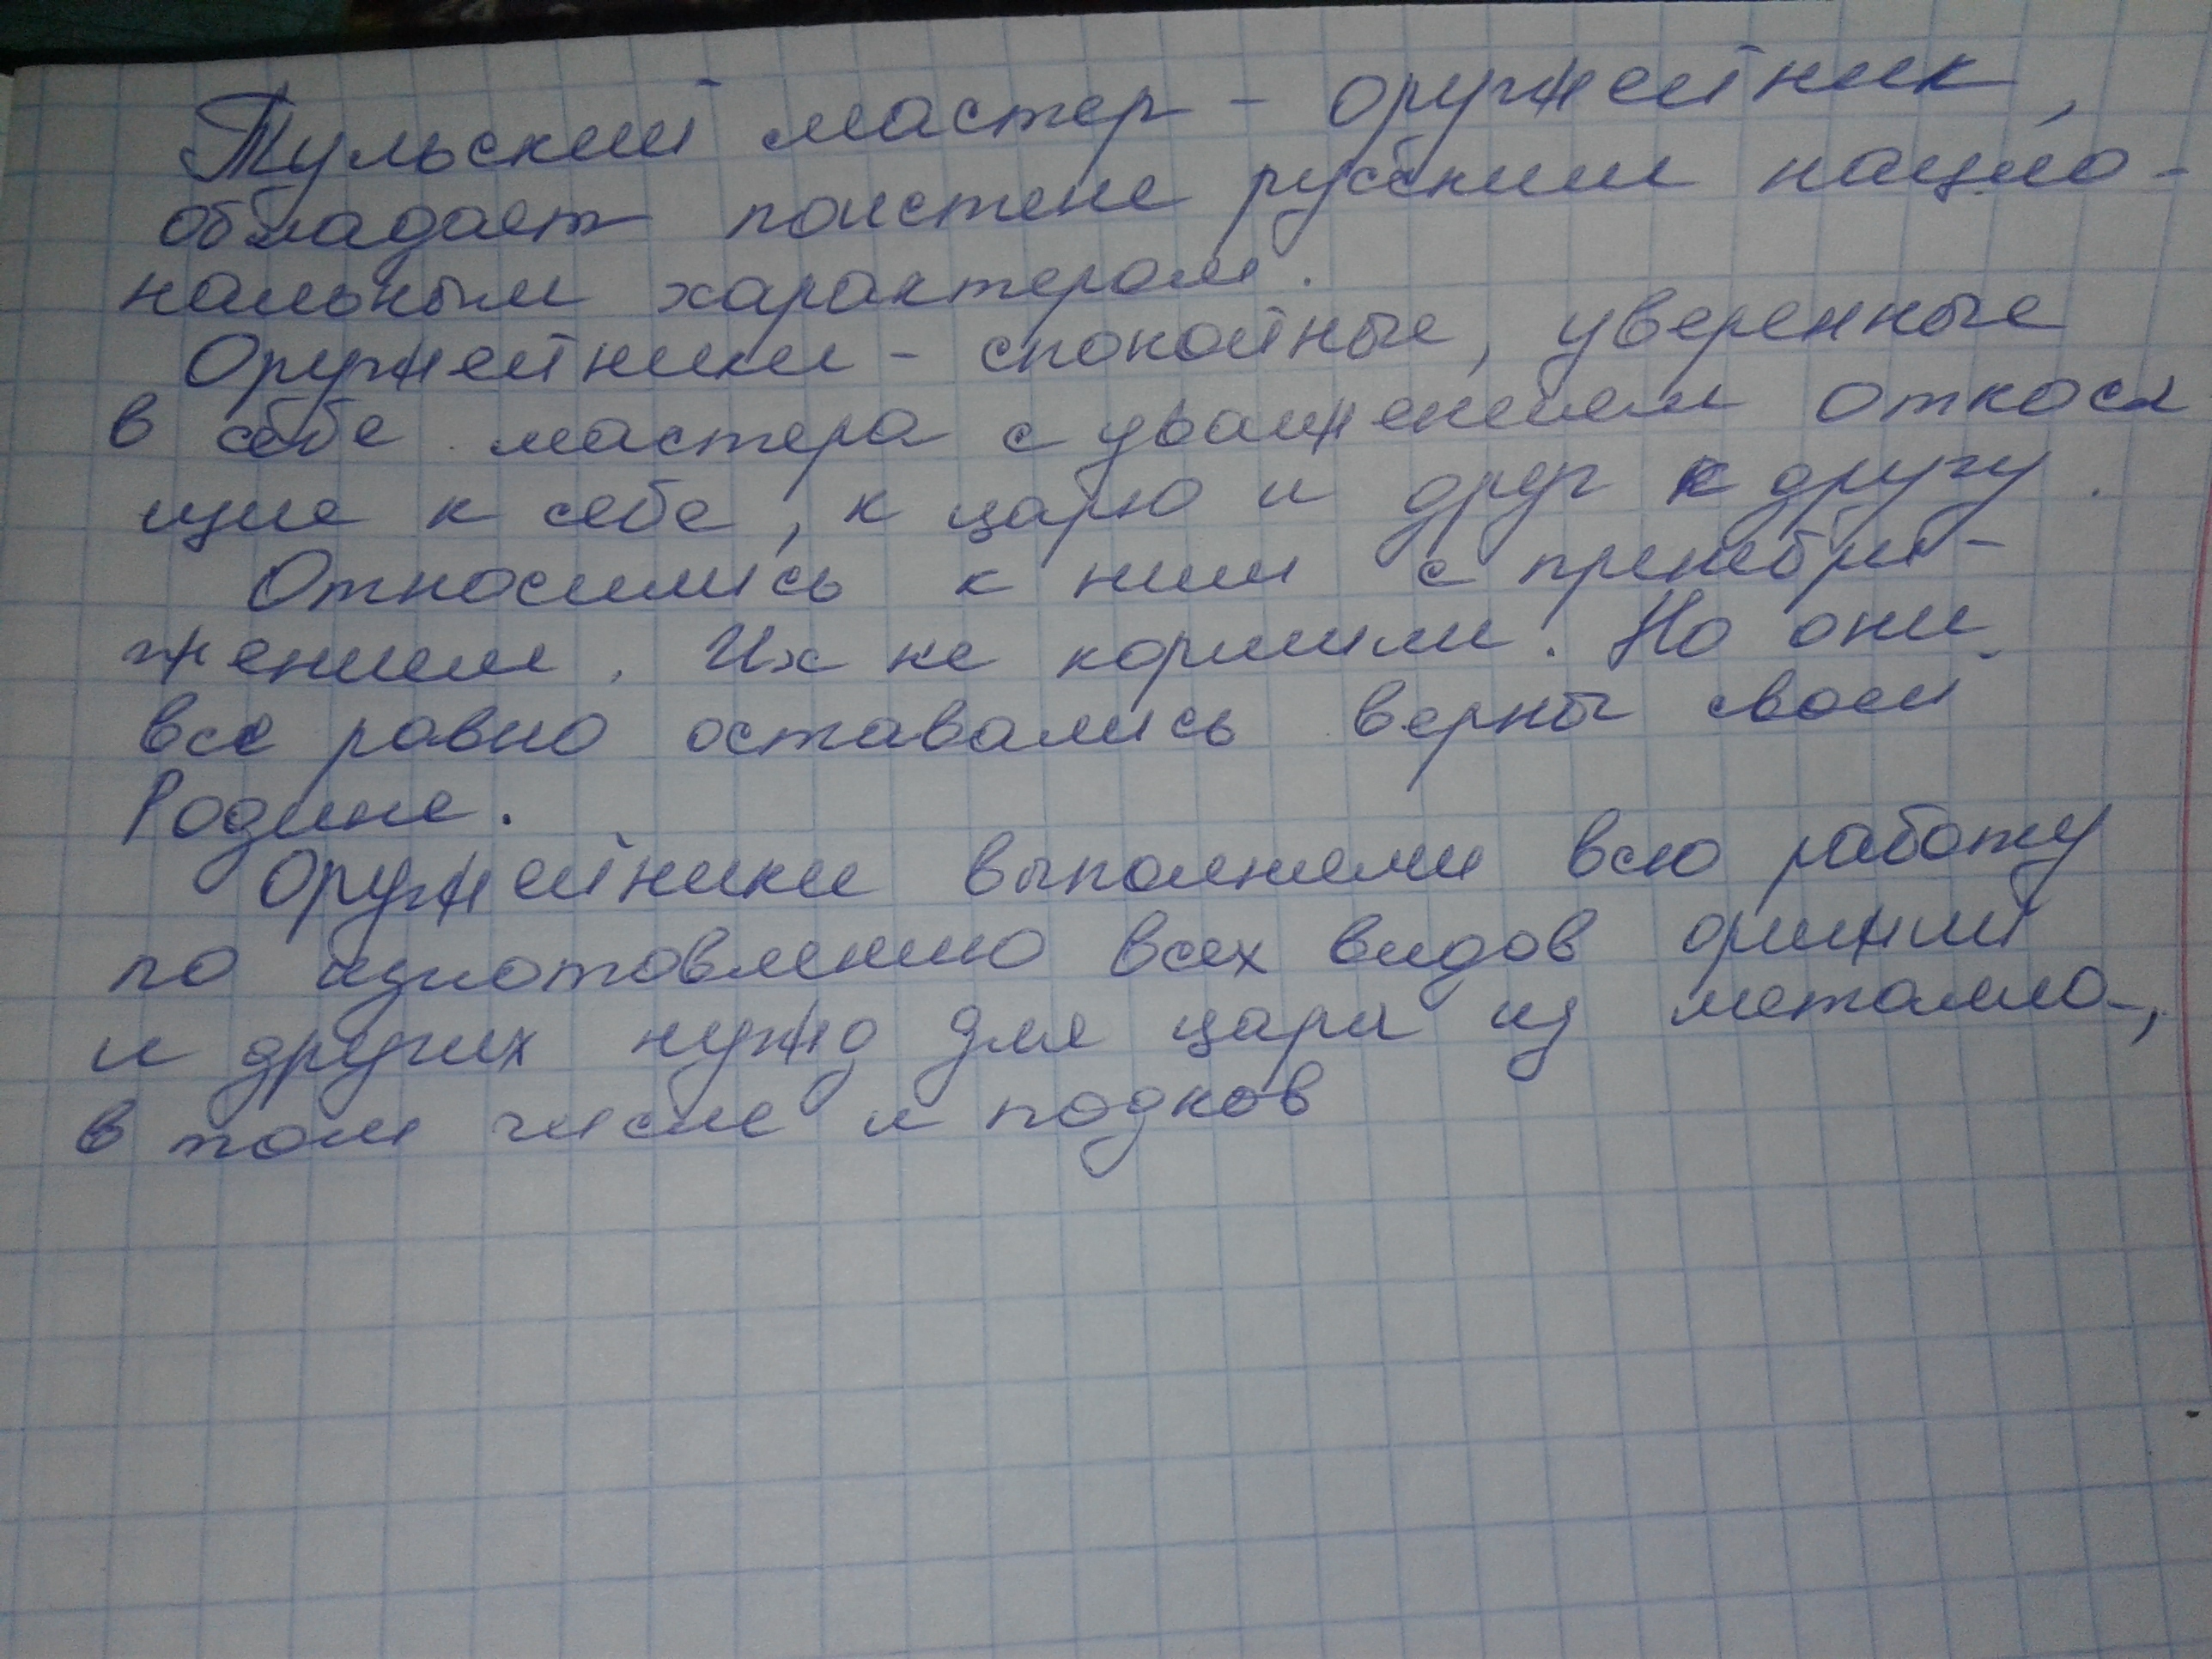 Тульский мастер - оружейник,
обладает поистене русским нацио-
нальным характером.
Оружейники - спокойные, уверенные
в себе мастера с уважением относя
щие к себе, к царю и друг к другу.
Относились к ним с пренебре-
жением. Их не кормили. Но они
все равно оставались верны своей
Родине.
Оружейники выполняли всю работу
по изготовлению всех видов
и других нужно для царя из металла,
в том числе и подков